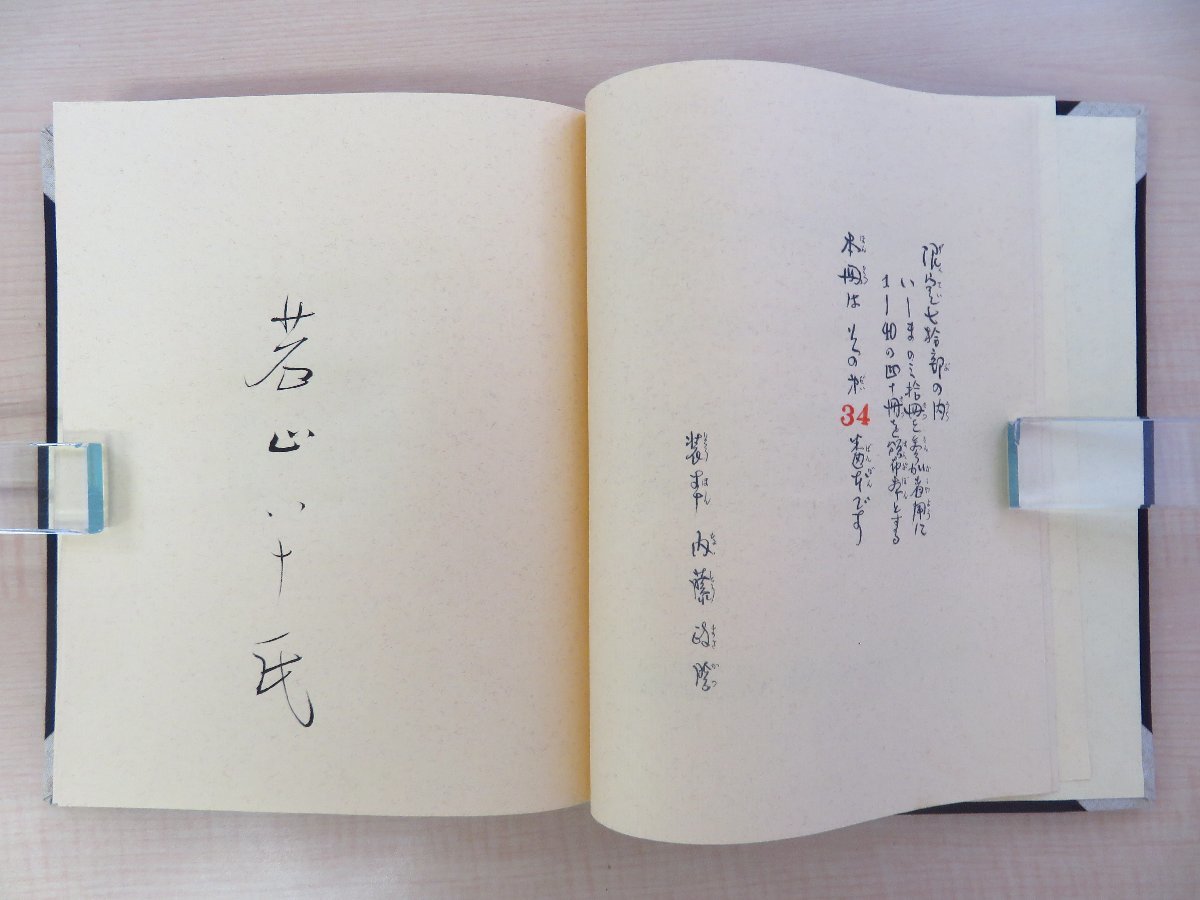 限定七拾部の内
い—まの三拾冊を参加者用に
1—40の四十冊を頒布本とする
本冊は その第34番本です
装本 内藤政勝
若山八十氏